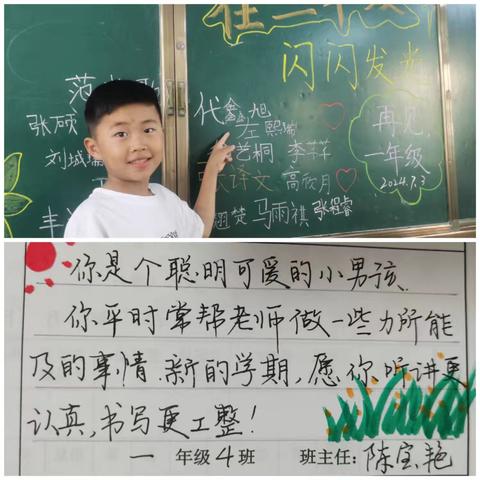 在二年级
闪闪发光
张硕
刘城
代鑫旭
左熙瑞
艺桐 李芊芊
张译文 高欣月
马雨祺 张程睿
再见,
一年级
2024.7.3
你是个聪.明可爱的小男孩.
你平时常帮老师做一些力所能
及的事情.新的学期,愿你听讲更
认真,书写更工整!
一 年级4班 班主任:陈宝艳